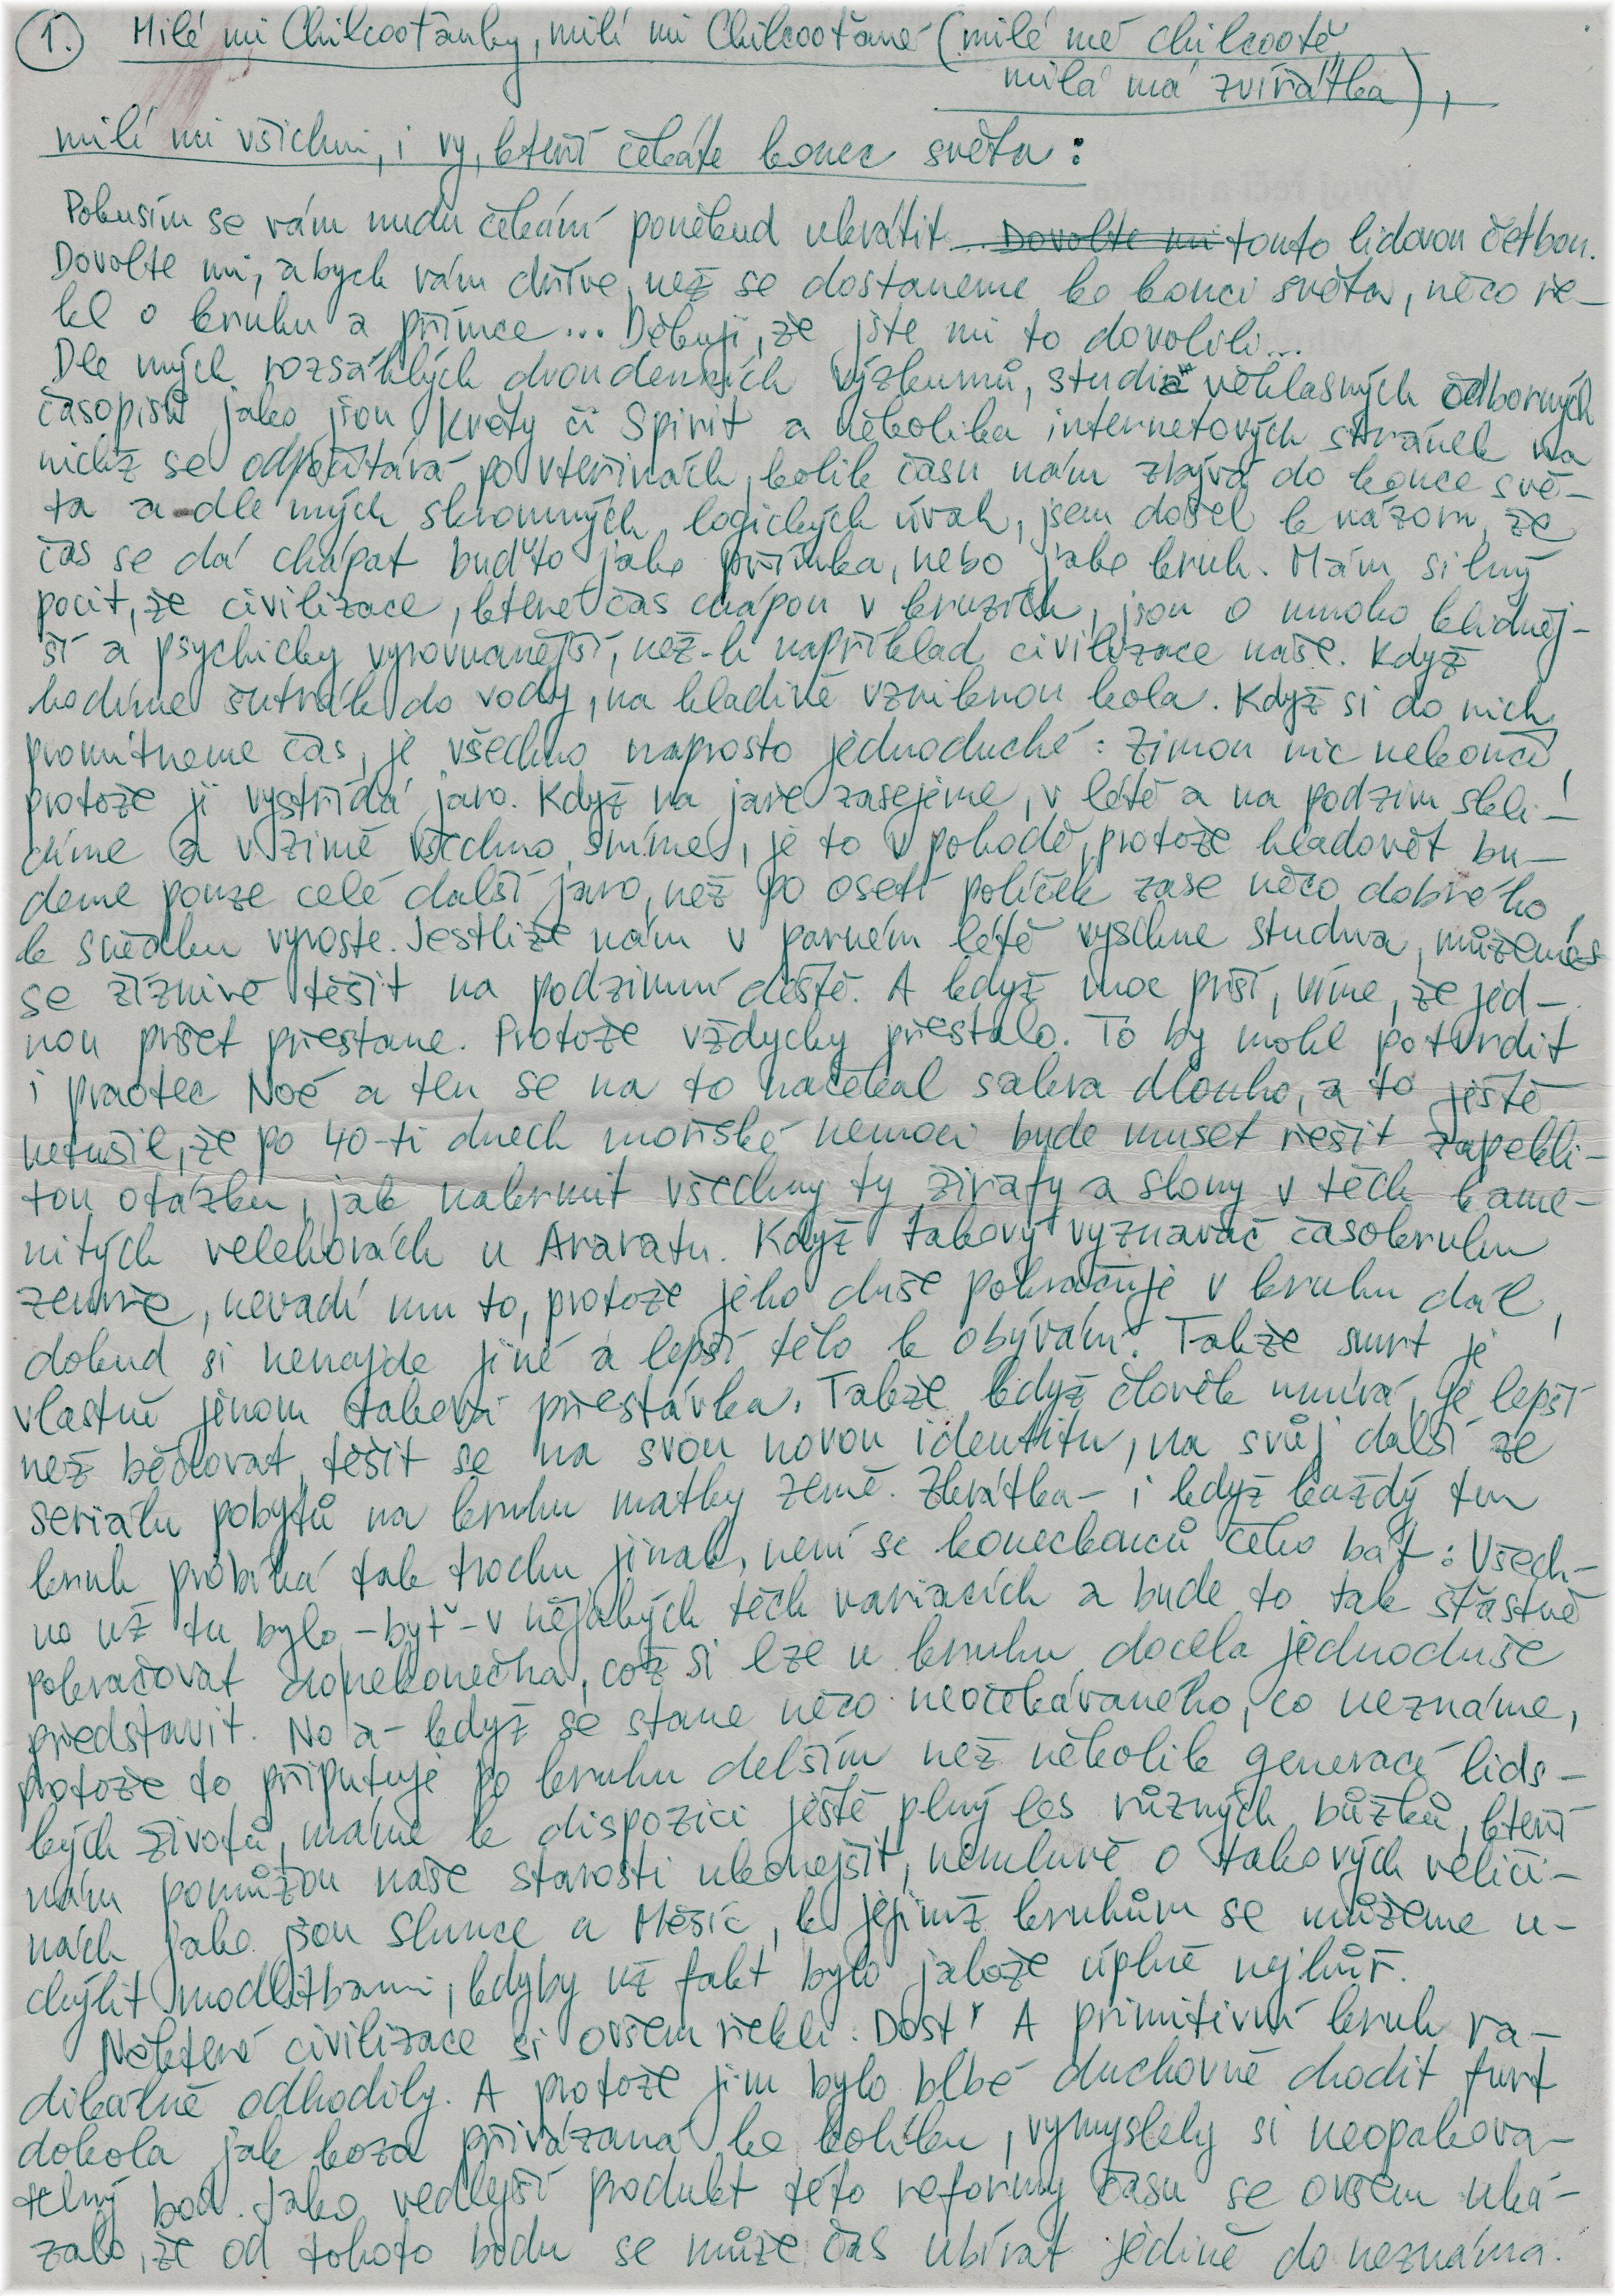 1. Milé mi Chilcooťanky, milí mi Chilcooťané (milé mé chilcootě,
milá má zvířátka),
milí mi všichni, i vy, kteří čekáte konec světa:
Pokusím se vám nudu čekání poněkud ukrátit... Dovolte mi touto lidovou četbou.
Dovolte mi, abych vám dříve, než se dostaneme ke konci světa, něco ře-
kl o kruhu a přímce... Děkuji, že jste mi to dovolili...
Dle mých rozsáhlých dvoudenních výzkumů, studia věhlasných odborných
časopisů jako jsou Květy či Spirit a několika internetových stránek na
nichž se odpočítává po vteřinách, kolik času nám zbývá do konce svě-
ta a dle mých skromných logických úvah, jsem došel k názoru, že
čas se dá chápat buďto jako přímka, nebo jako kruh. Mám silný
pocit, že civilizace, které čas chápou v kruzích, jsou o mnoho klidněj-
ší a psychicky vyrovnanější, než-li například civilizace naše. Když
hodíme šutrák do vody, na hladině vzniknou kola. Když si do nich
promítneme čas, je všechno naprosto jednoduché: Zimou nic nekončí,
protože ji vystřídá jaro. Když na jaře zasejeme, v létě a na podzim skli-
díme a v zimě všechno sníme, je to v pohodě, protože hladovět bu-
deme pouze celé další jaro, než po osetí políček zase něco dobrého
k snědku vyroste. Jestliže nám v parném létě vyschne studna, můžeme
se žíznivě těšit na podzimní deště. A když moc prší, víme, že jed-
nou pršet přestane. Protože vždycky přestalo. To by mohl potvrdit
i praotec Noé a ten se na to načekal sakra dlouho, a to ještě
netušil, že po 40-ti dnech mořské nemoci bude muset řešit zapekli-
tou otázku, jak nakrmit všechny ty žirafy a slony v těch kame-
nitých velehorách u Araratu. Když takový vyznavač časokruhu
zemře, nevadí mu to, protože jeho duše pokračuje v kruhu dál,
dokud si nenajde jiné a lepší tělo k obývání. Takže smrt je
vlastně jenom taková přestávka. Takže když člověk umírá, je lepší
než bědovat, těšit se na svou novou identitu, na svůj další ze
seriálu pobytů na kruhu matky země. Zkrátka - i když každý ten
kruh probíhá tak trochu jinak, není se konec konců čeho bát: Všech-
no už tu bylo - byť - v nějakých těch variacích a bude to tak šťastně
pokračovat donekonečna, což si lze u kruhu docela jednoduše
představit. No a - když se stane něco neočekávaného, co neznáme,
protože to připutuje po kruhu delším než několik generací lids-
kých životů, máme k dispozici ještě plný les různých bůžků, kteří
nám pomůžou naše starosti ukonejšit, nemluvě o takových veliči-
nách jako jsou Slunce a Měsíc, k jejimž kruhům se můžeme u-
chýlit modlitbami, kdyby už fakt bylo jakože úplně nejhůř.
Některé civilizace si ovšem řekli: Dost! A primitivní kruh ra-
dikálně odhodily. A protože jim bylo blbé duchovně chodit furt
dokola jak koza přivázaná ke kolíku, vymyslely si neopakova-
telný bod. Jako vedlejší produkt této reformy času se ovšem uká-
zalo, že od tohoto bodu se může čas ubírat jedině do neznáma.